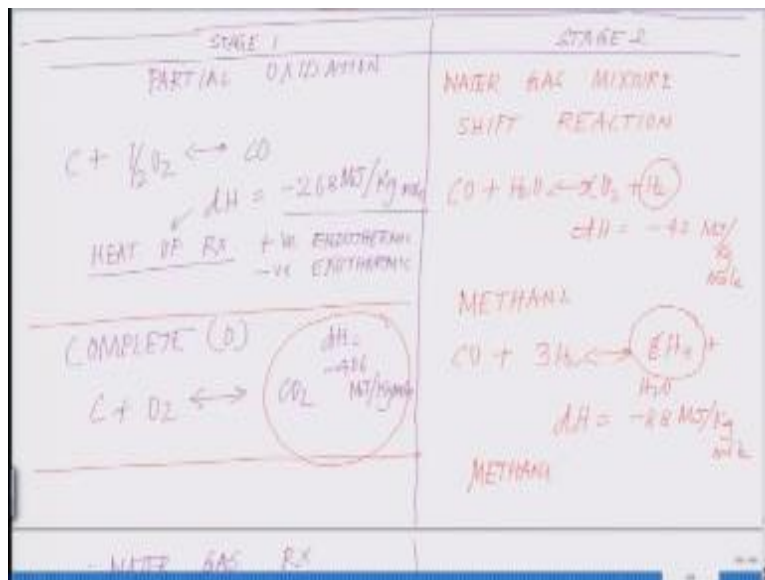 STAGE 1
PARTIAL OXIDATION
C + 1/2 O2 ↔ CO
dH = -268 MJ/Kg mole
HEAT OF RX +ve ENDOTHERMIC
-ve EXOTHERMIC
COMPLETE (O)
C + O2 ↔ CO2
dH =
-406
MJ/Kgmole
- WATER GAS RX
STAGE 2
WATER GAS MIXTURE
SHIFT REACTION
CO + H2O ↔ CO2 + H2
dH = -42 MJ/
Kg
mole
METHANE
CO + 3H2 ↔ CH4 +
H2O
dH = -88 MJ/Kg
mole
METHANE